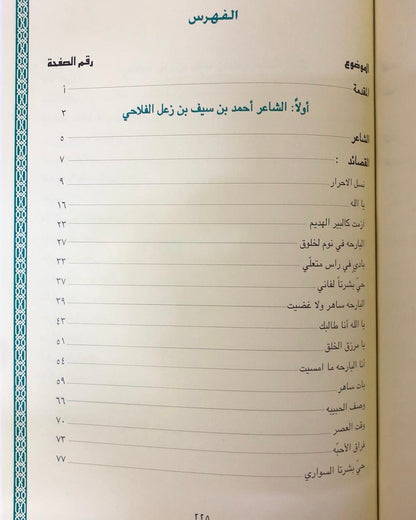 الفهرس
الموضوع رقم الصفحة
المقدمة أ
أولاً: الشاعر أحمد بن سيف بن زعل الفلاحي ٣
الشاعر ٥
القصائد : ٧
نسل الاحرار ٩
يا الله ١٦
أزمت كالبير الهديم ٢٣
البارحه في نوم لخلوق ٢٧
بادي في راس متعلّي ٣٣
حيّ بشرتاً لفاني ٣٧
البارحه ساهر ولا غضيت ٣٩
يا الله أنا طالبك ٤٣
يا مرزق الخلق ٥١
أنا البارحه ما امسيت ٥٤
بات ساهر ٥٩
وصف الحبيبه ٦٦
وقت العصر ٧٠
فراق الأحبّه ٧٣
حيّ بشرتا السواري ٧٧
٢٢٥